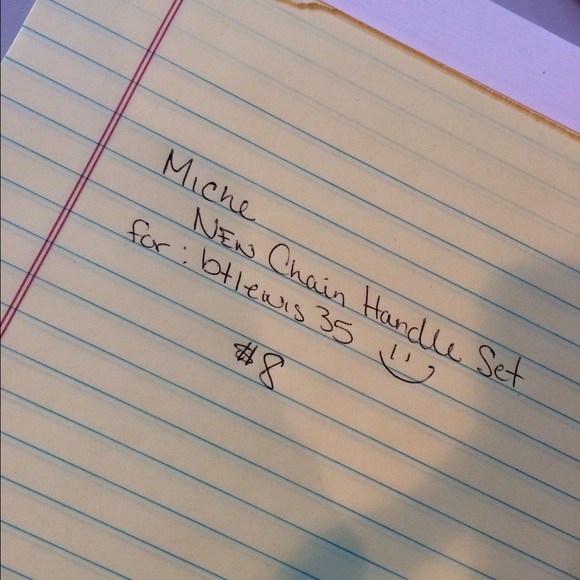 Miche
New Chain Handle Set
for : btlewis 35
#8